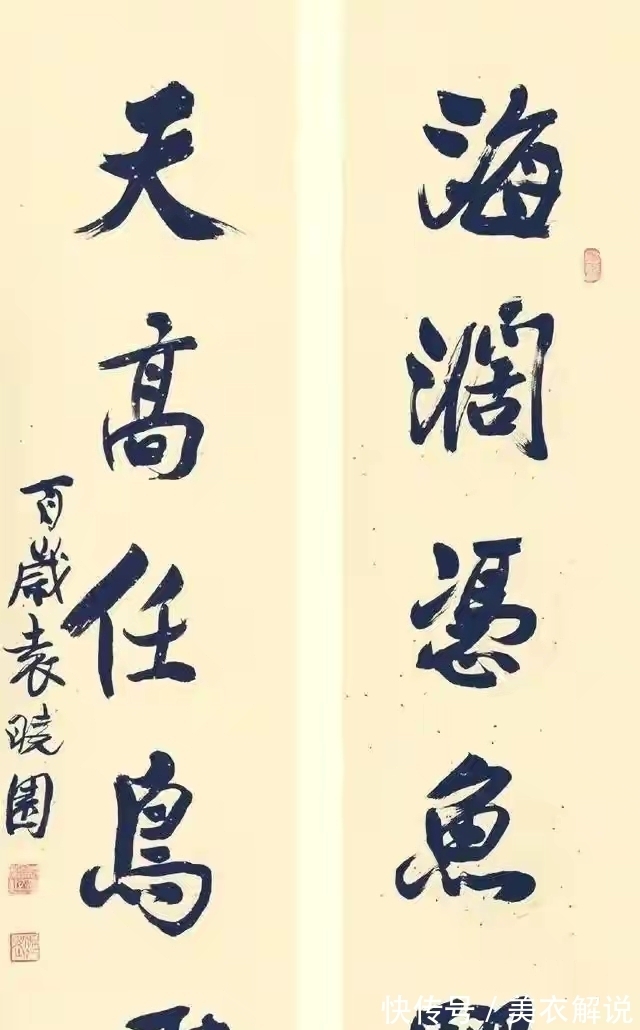 海濶憑魚
天高任鳥
百歲袁曉園
快传号/美衣解说